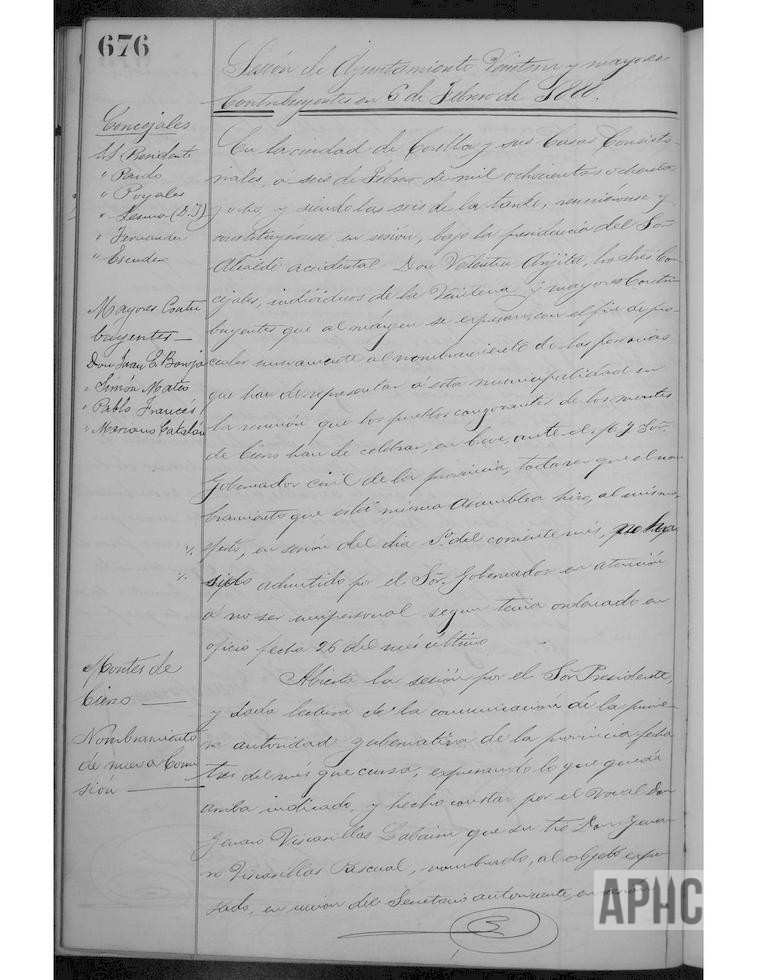 676
Sesión de Ayuntamiento Veintena y mayores
Contribuyentes en 6 de Febrero de 1888.
Concejales
S.S. Presidente
" Pardo
" Poyales
" Sesma (D.J)
" Fernandez
" Escudero
Mayores Contri
buyentes —
Don Juan E. Boroja
" Simón Mateo
" Pablo Francés
" Mariano Catalán
Montes de
Cierzo —
Nombramiento
de nueva Comi
sión —
En la ciudad de Corella y sus Casas Consisto-
riales, á seis de Febrero de mil ochocientos ochenta
y ocho, y siendo las seis de la tarde, reuniéronse y
constituyéronse en sesión, bajo la presidencia del Sor
Alcalde accidental Don Valentin los Sres Con
cejales, individuos de la Veintena y mayores Contri-
buyentes que al márgen se expresan, con el fin de pro
ceder nuevamente al nombramiento de las personas
que han de representar á esta municipalidad en
la reunión que los pueblos congozantes de los montes
de Cierzo han de celebrar, en breve, ante el Sor.
Gobernador civil de la provincia, toda vez que el nom
bramiento que esta misma Asamblea hizo, al mismo
efecto, en sesión del dia 1º del corriente mes, no ha
sido admitido por el Sor. Gobernador en atención
á no ser unipersonal segun tenia ordenado en
oficio fecha 26 del mes último.
Abierta la sesión por el Sor Presidente,
y dada lectura de la comunicación de la prime
ra autoridad gubernativa de la provincia fecha
tres del mes que cursa, expresando lo que queda
arriba indicado, y hecho constar por el Vocal Don
Genaro Viscasillas que su tio Don Gena-
ro Viscasillas Pascual, nombrado, al objeto expre-
sado, en union del Secretario autorizante, en sesión
APHC